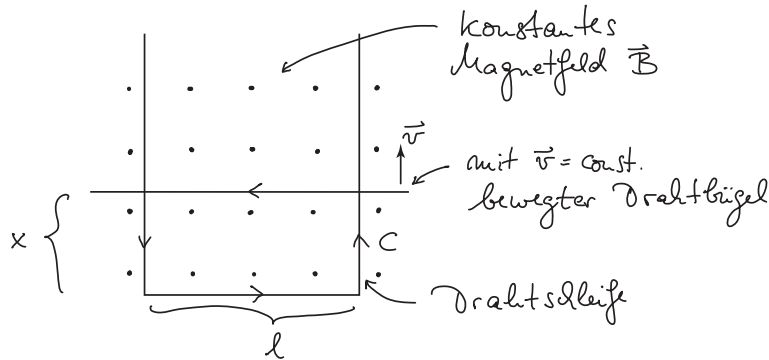 Konstantes
Magnetfeld B⃗
v⃗
mit v⃗ = const.
bewegter Drahtbügel
x
C
Drahtschleife
l